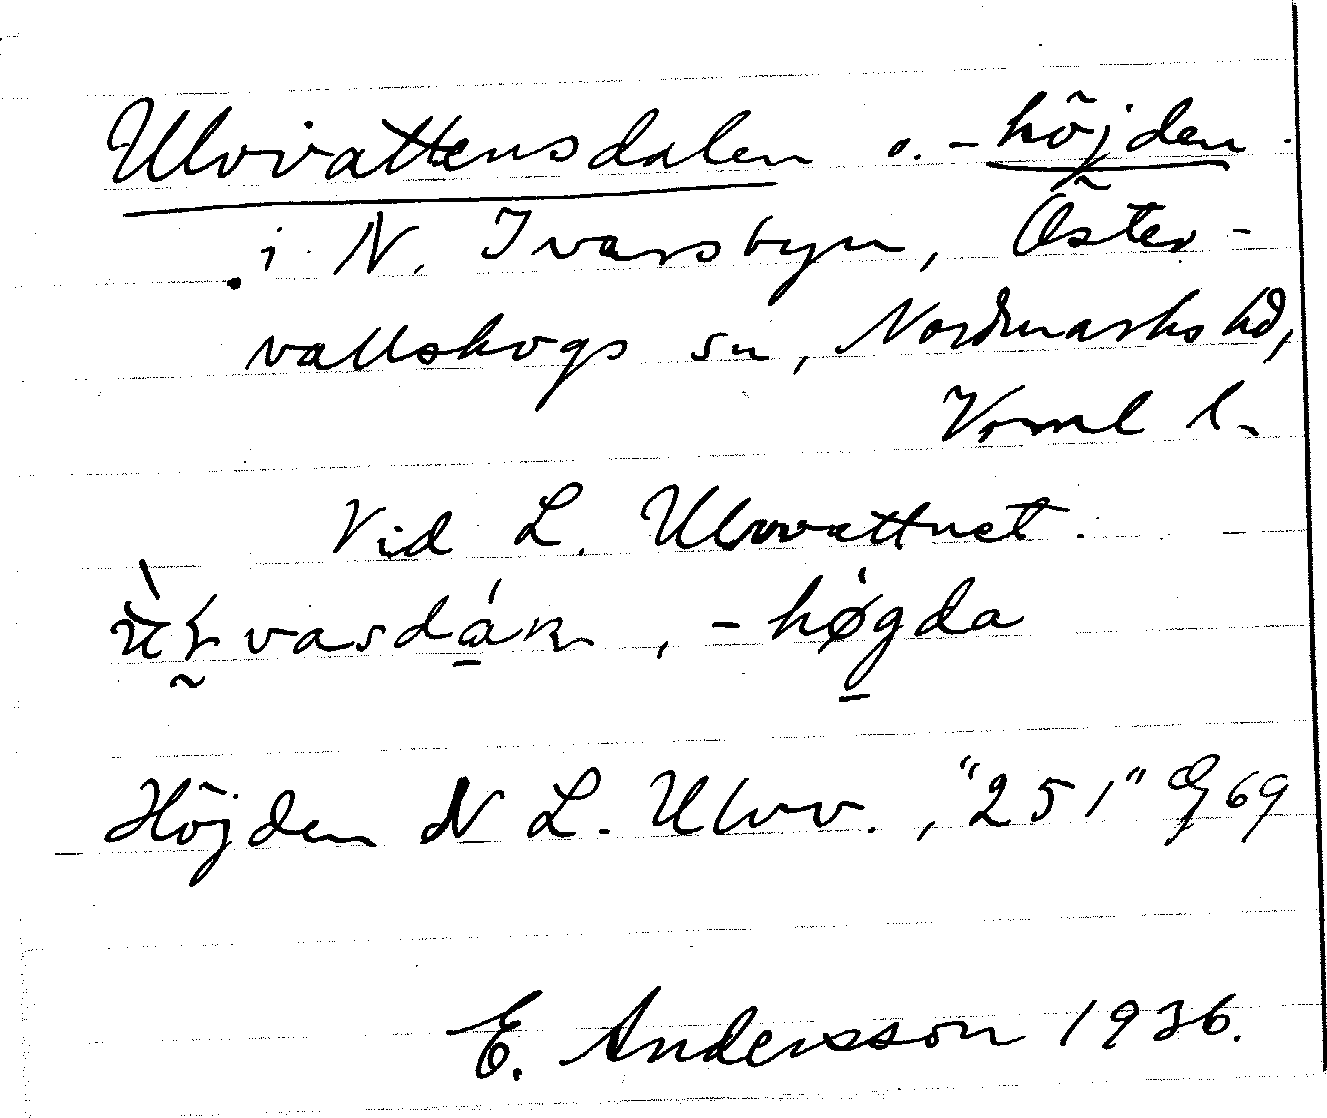 Ulvvattensdalen o. -höjden.
i N. Ivarsbyn, Öster-
vallskogs sn, Nordmarks hd,
Vrml l.
Vid L. Ulvvattnet.
, -høgda
Höjden N L. Ulvv., "251" 69
E. Andersson 1936.